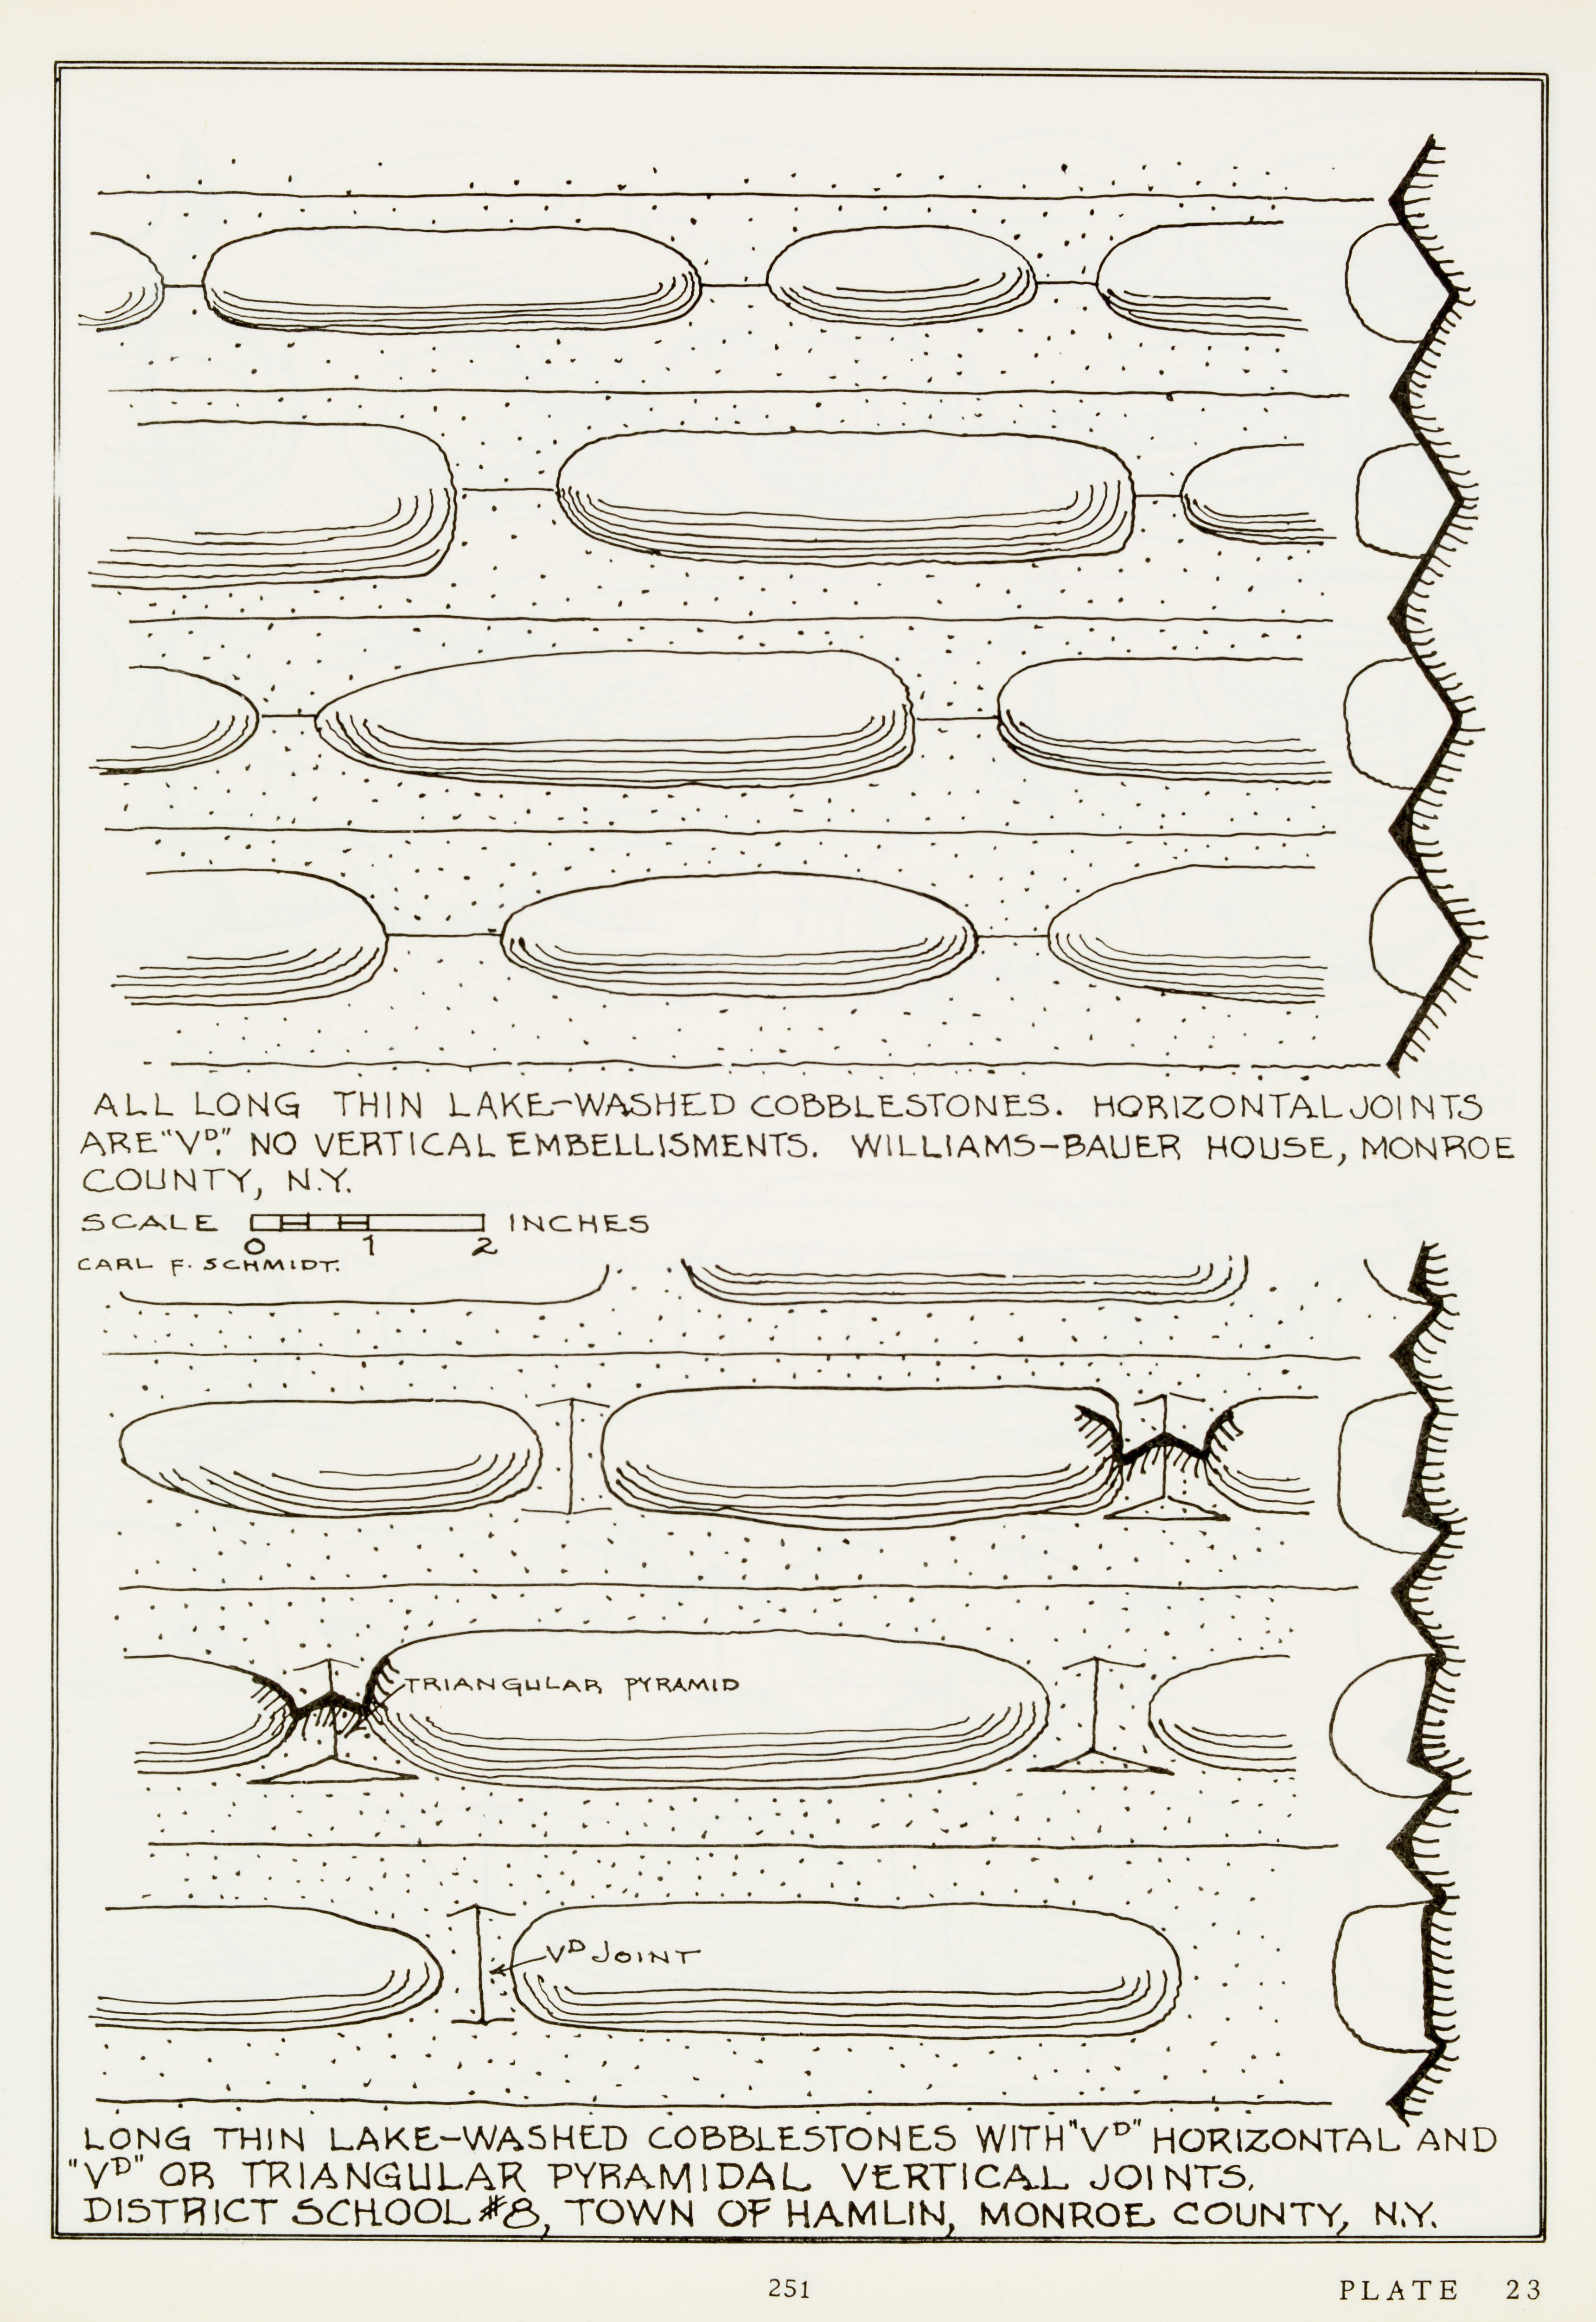 ALL LONG THIN LAKE-WASHED COBBLESTONES. HORIZONTAL JOINTS
ARE "VD". NO VERTICAL EMBELLISMENTS. WILLIAMS-BAUER HOUSE, MONROE
COUNTY, N.Y.
SCALE INCHES
0 1 2
CARL F. SCHMIDT.
TRIANGULAR PYRAMID
VD JOINT
LONG THIN LAKE-WASHED COBBLESTONES WITH "VD" HORIZONTAL AND
"VD" OR TRIANGULAR PYRAMIDAL VERTICAL JOINTS.
DISTRICT SCHOOL #8, TOWN OF HAMLIN, MONROE COUNTY, N.Y.
251
PLATE 23